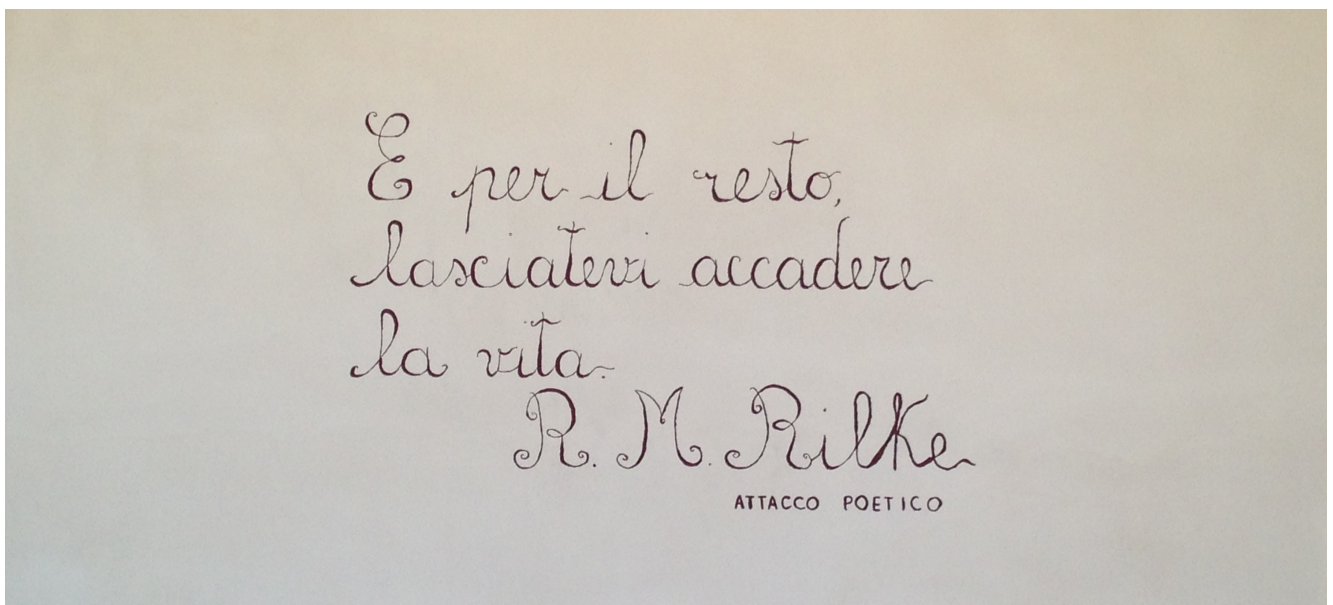 E per il resto,
lasciatevi accadere
la vita.
R. M. Rilke
ATTACCO POETICO